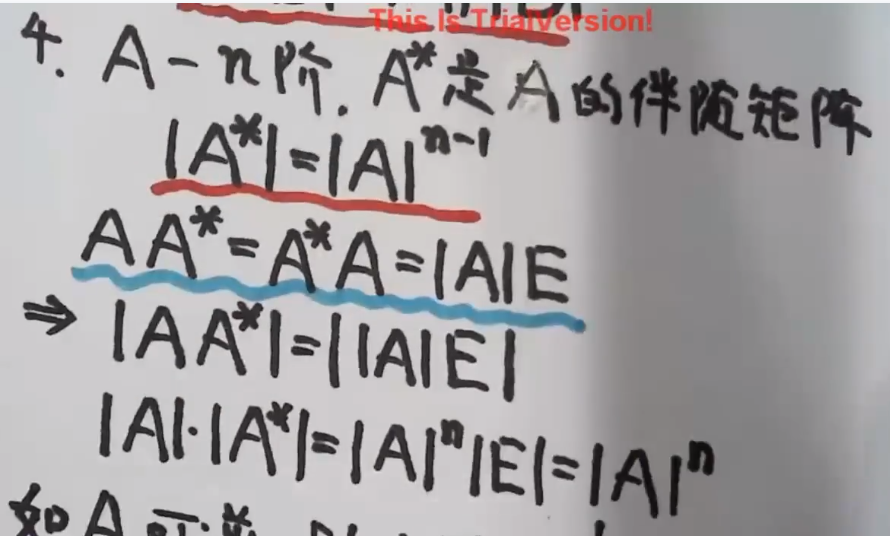 This Is TrialVersion!
4. A-n阶. A*是A的伴随矩阵
|A*|=|A|ⁿ⁻¹
AA*=A*A=|A|E
⇒ |AA*|=||A|E|
|A|·|A*|=|A|ⁿ|E|=|A|ⁿ
如A可逆